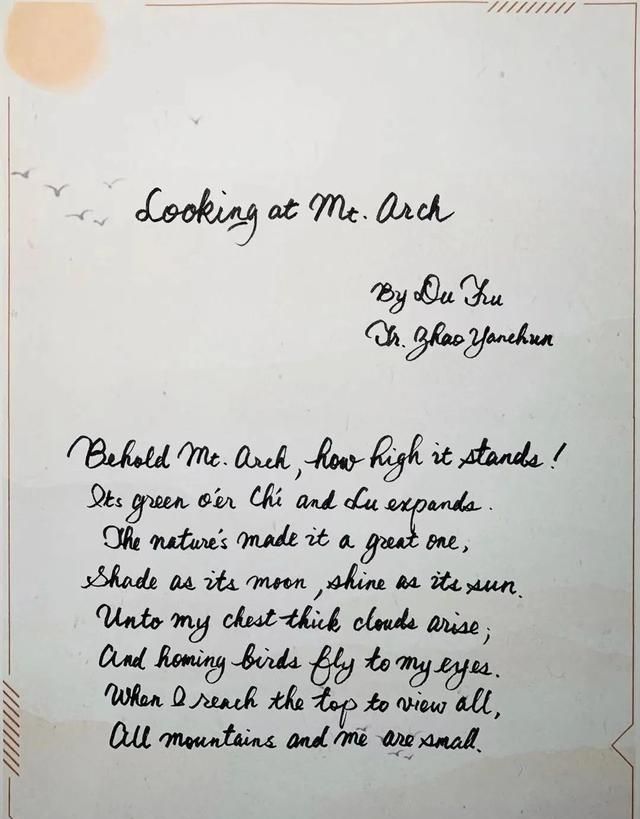 Looking at Mt. Arch
By Du Fu
Tr. Zhao Yanchun
Behold Mt. Arch, how high it stands!
Its green o'er Chi and Lu expands.
The nature's made it a great one,
Shade as its moon, shine as its sun.
Unto my chest thick clouds arise;
And homing birds fly to my eyes.
When I reach the top to view all,
All mountains and me are small.